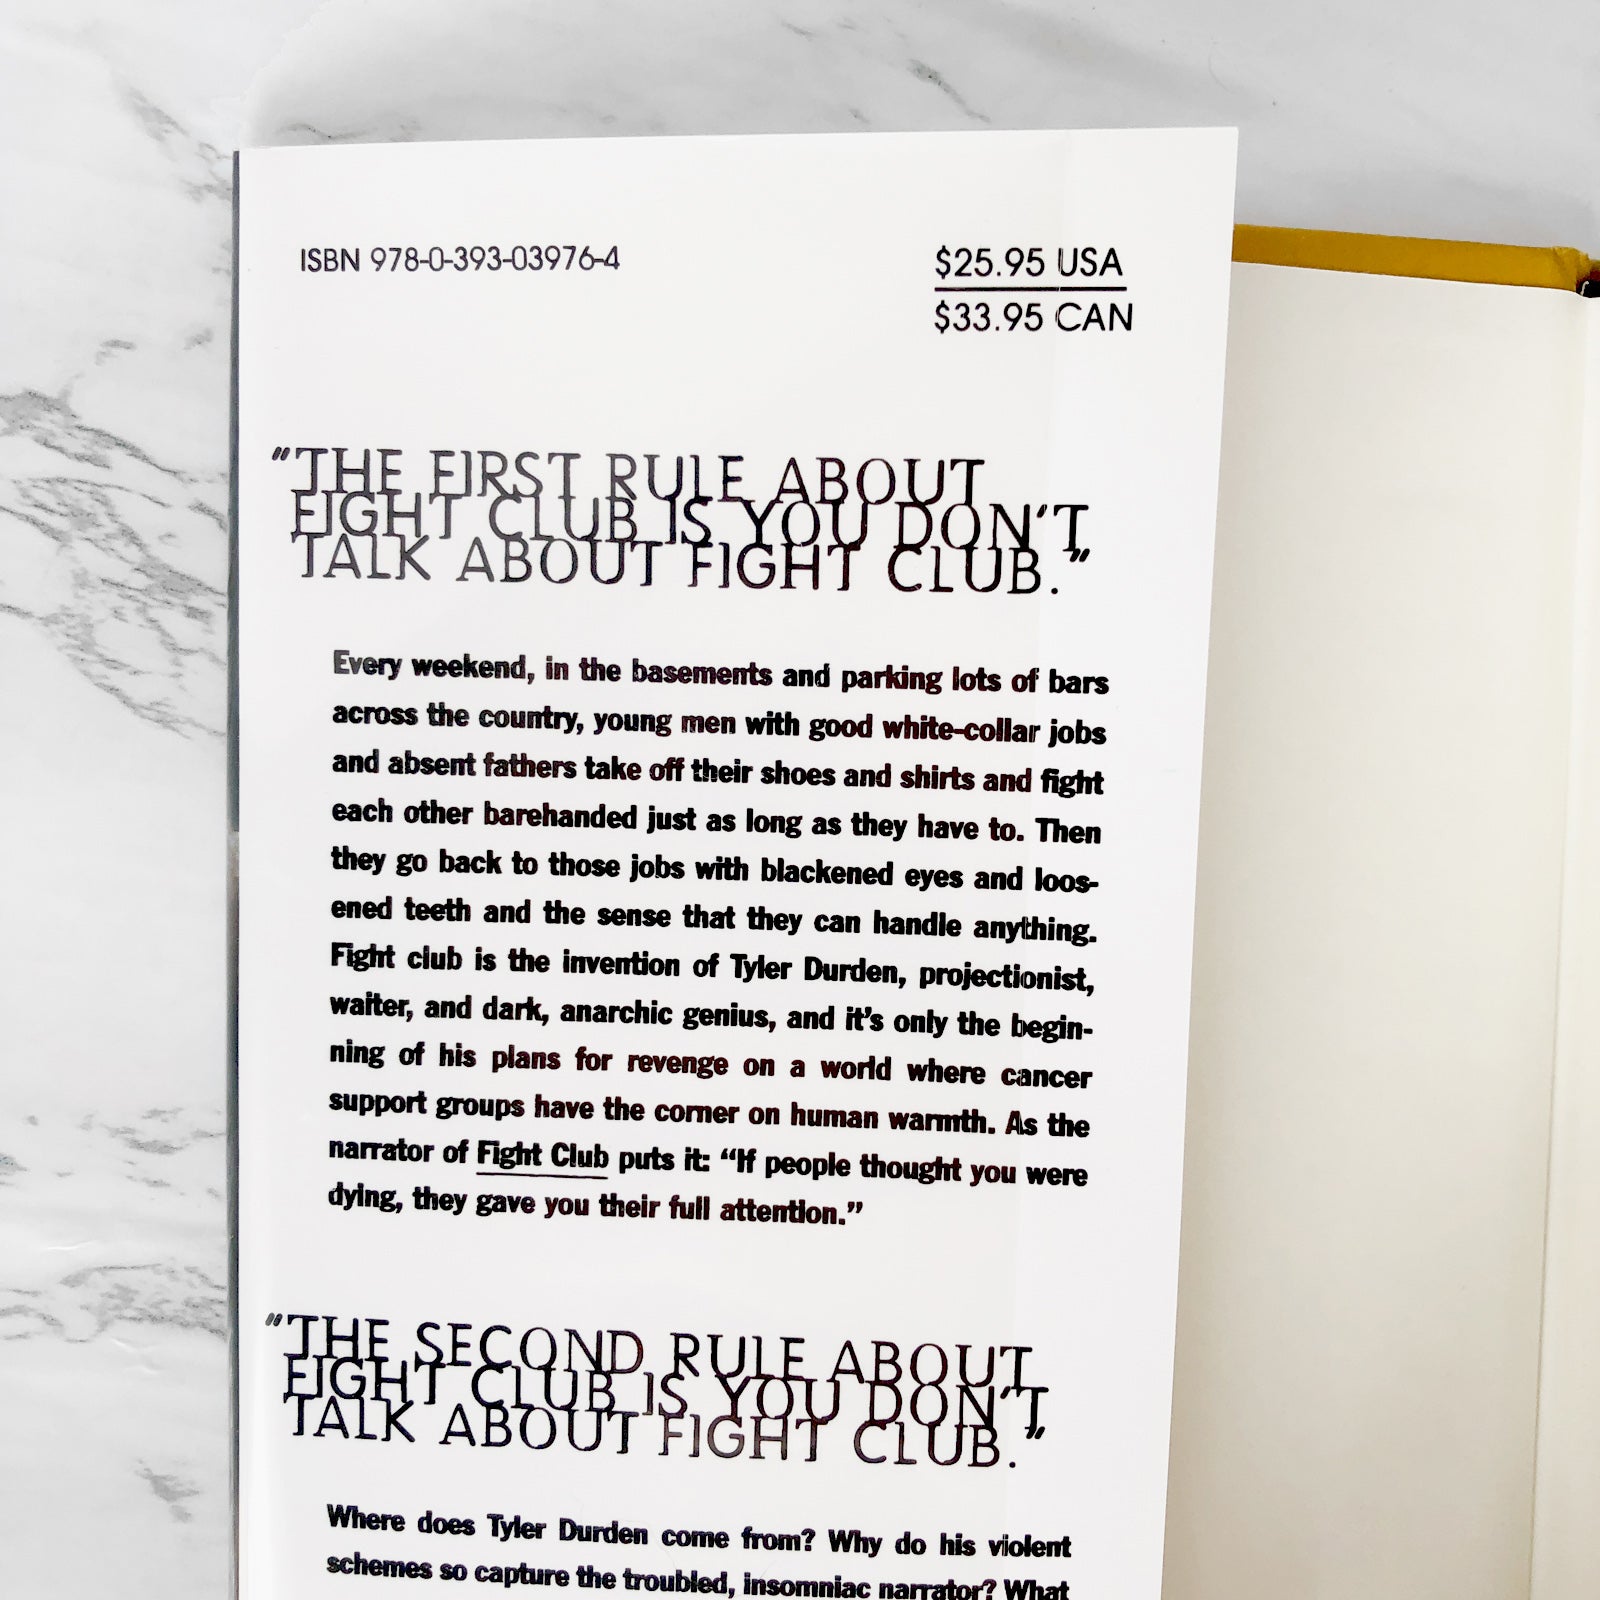 ISBN 978-0-393-03976-4
$25.95 USA
$33.95 CAN
"THE FIRST RULE ABOUT
FIGHT CLUB IS YOU DON'T
TALK ABOUT FIGHT CLUB."
Every weekend, in the basements and parking lots of bars
across the country, young men with good white-collar jobs
and absent fathers take off their shoes and shirts and fight
each other barehanded just as long as they have to. Then
they go back to those jobs with blackened eyes and loos-
ened teeth and the sense that they can handle anything.
Fight club is the invention of Tyler Durden, projectionist,
waiter, and dark, anarchic genius, and it's only the begin-
ning of his plans for revenge on a world where cancer
support groups have the corner on human warmth. As the
narrator of Fight Club puts it: “If people thought you were
dying, they gave you their full attention.”
"THE SECOND RULE ABOUT
FIGHT CLUB IS YOU DON'T
TALK ABOUT FIGHT CLUB."
Where does Tyler Durden come from? Why do his violent
schemes so capture the troubled, insomniac narrator? What